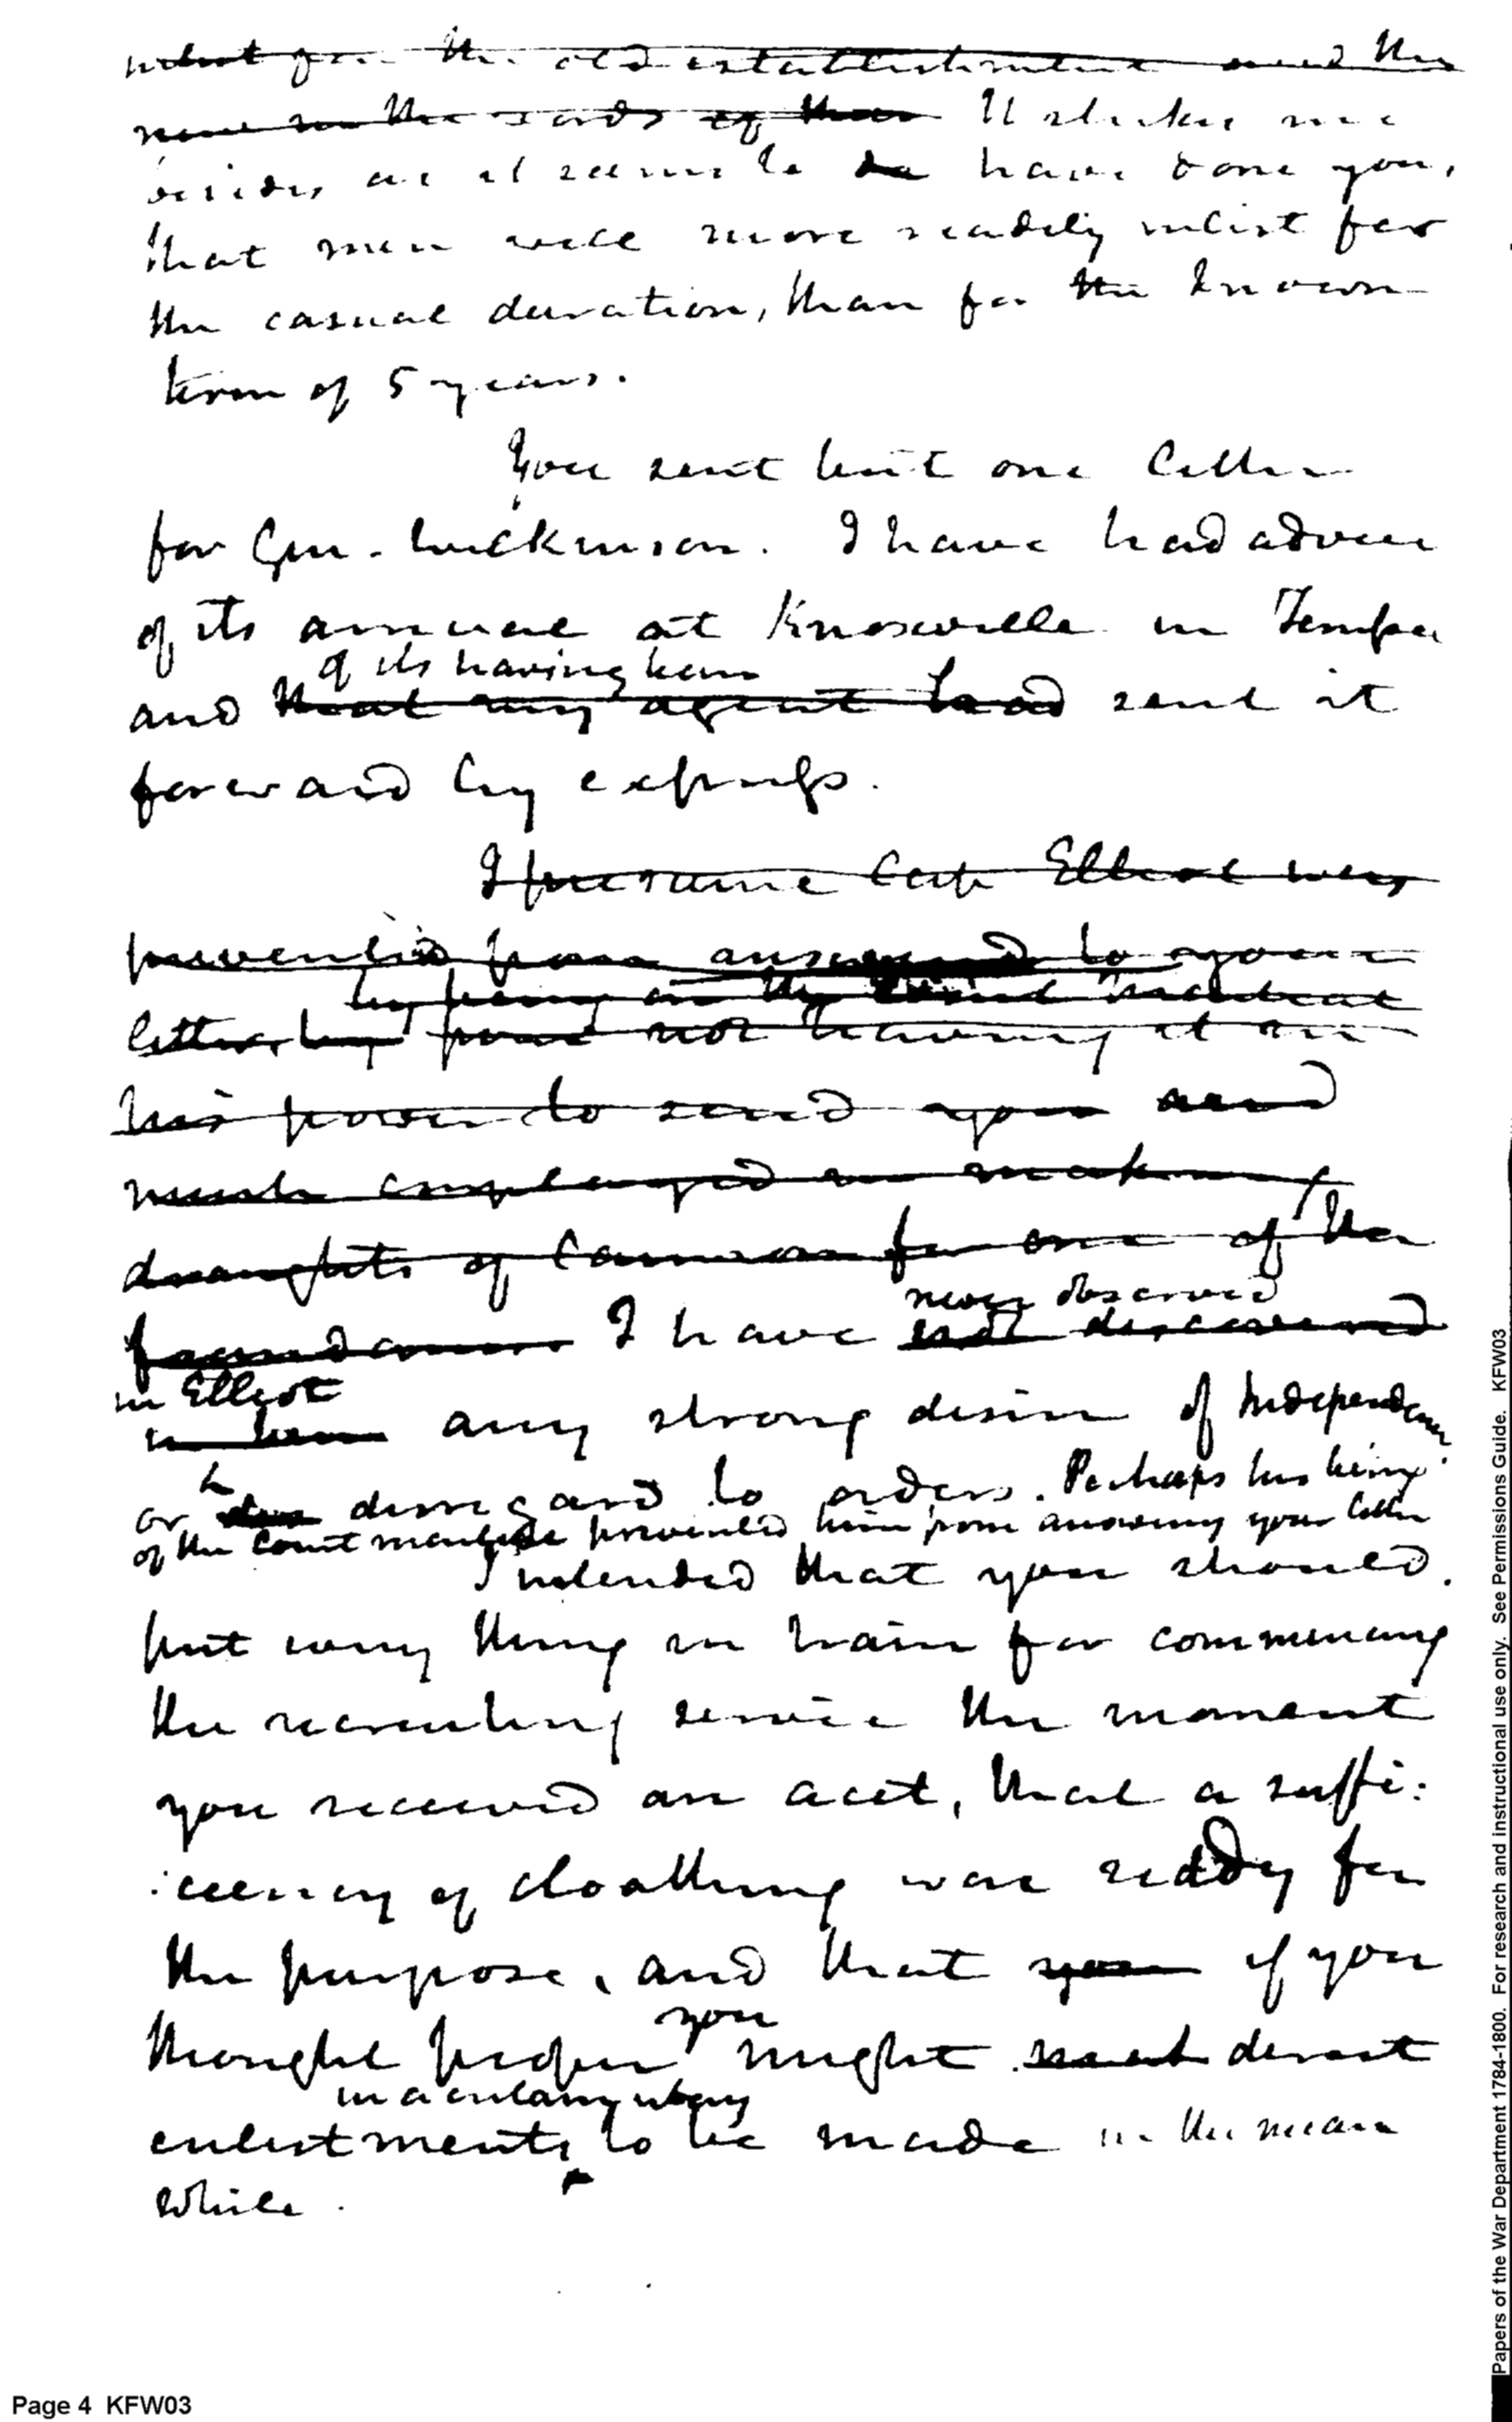 enlist for the old establishment and the
new in the words of the It strikes me
besides as it seems to have done you,
that men will more readily enlist for
the casual duration, than for the known
term of 5 years.
You sent but one letter
for Gen. Wilkinson. I have had advice
of its arrival at Knoxville in Tenessee
of its having been
and that my agent had sent it
forward by express.
I presume Capt Elliot was
prevented from answering to your
by being on the Court Martial
letter, by not having it in
his power to send you and
much employed in making
draughts of Cannon for one of the
never observed
founderies I have not discovered
in Elliot
in him any strong desire of Independence
or disregard to orders. Perhaps his being
of the Court martial prevented him from answering your letter
I intended that you should
put every thing in train for commencing
the recruiting service the moment
you received an acct, that a suffi:
:ciency of cloathing was ready for
the purpose, and that you if you
you
thought proper might direct
enlistments to be made in the mean
while.